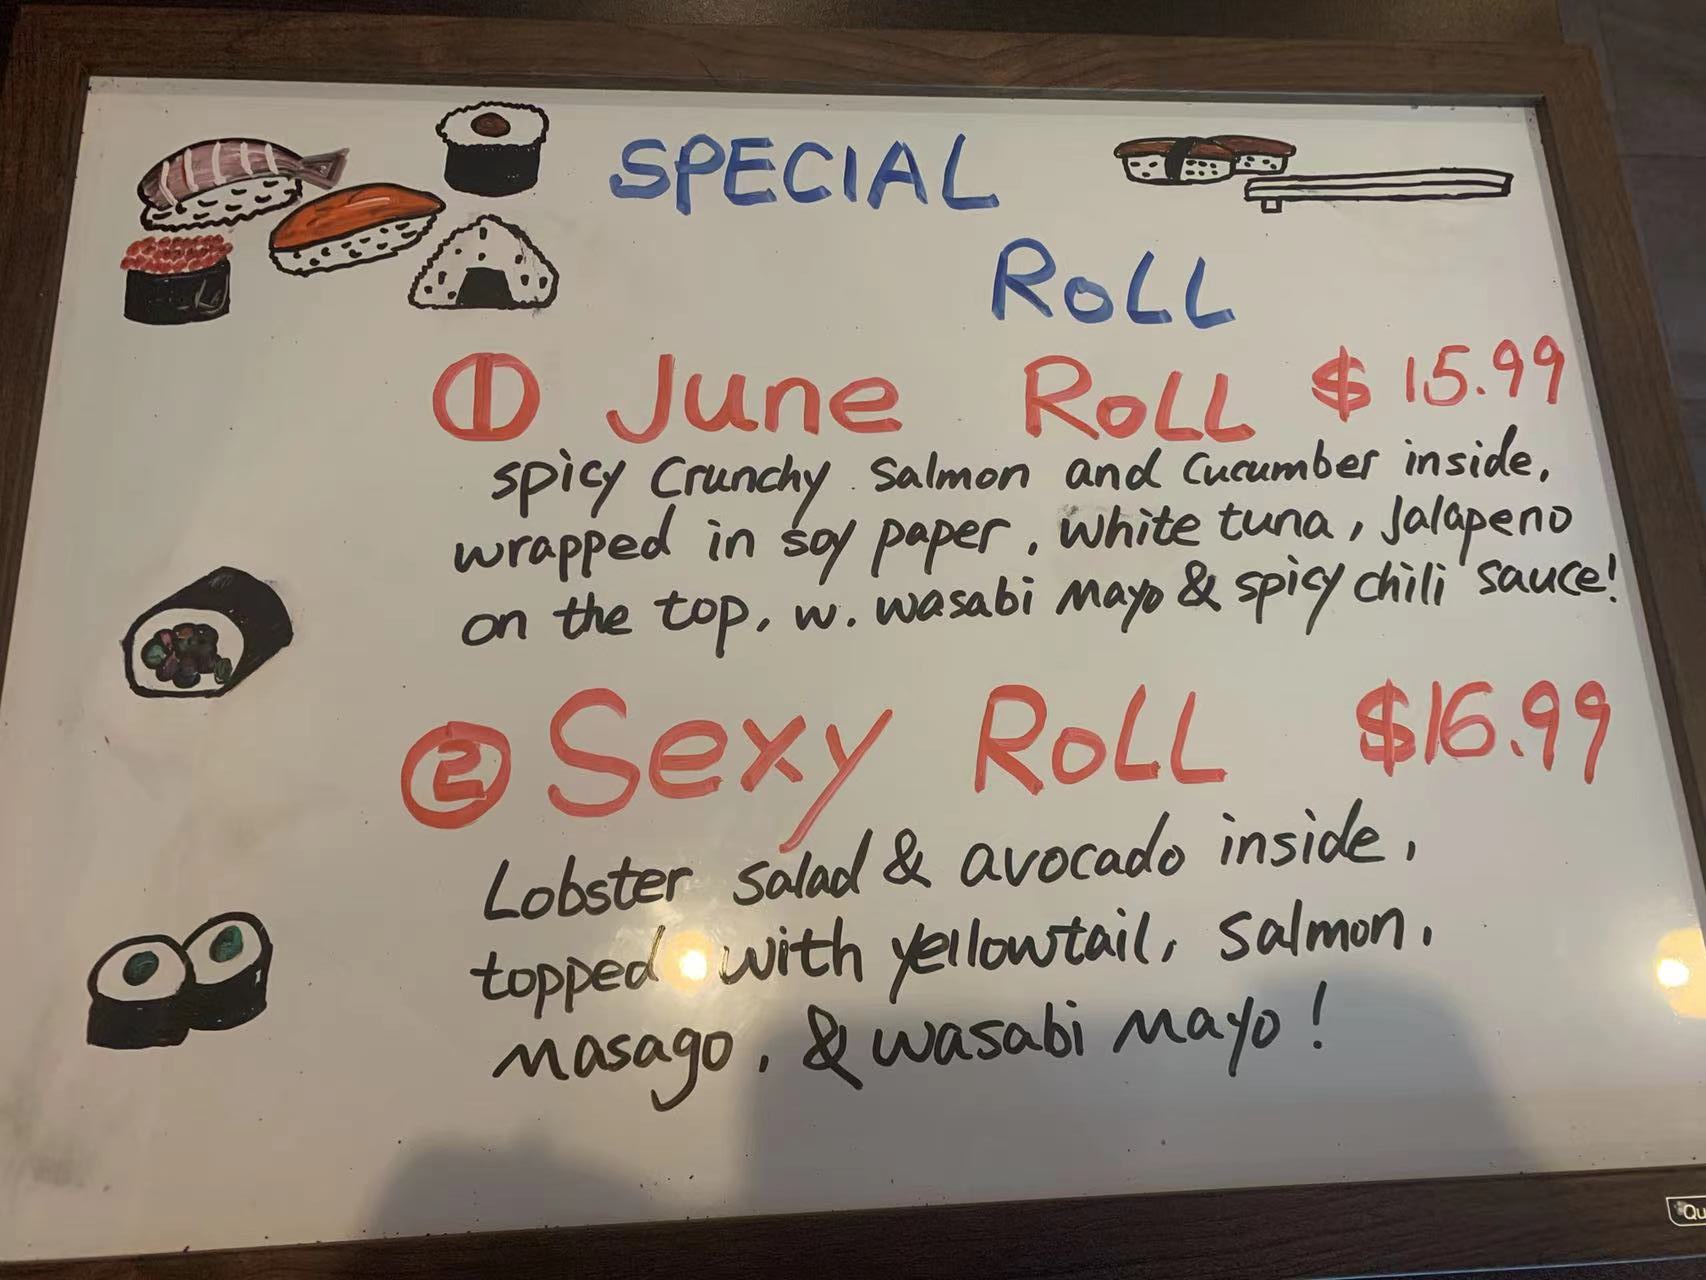 SPECIAL
ROLL
① June ROLL $15.99
spicy Crunchy salmon and cucumber inside,
wrapped in soy paper, white tuna, Jalapeno
on the top, w. wasabi mayo & spicy chili sauce!
② Sexy ROLL $16.99
Lobster salad & avocado inside,
topped with yellowtail, salmon,
masago, & wasabi mayo!